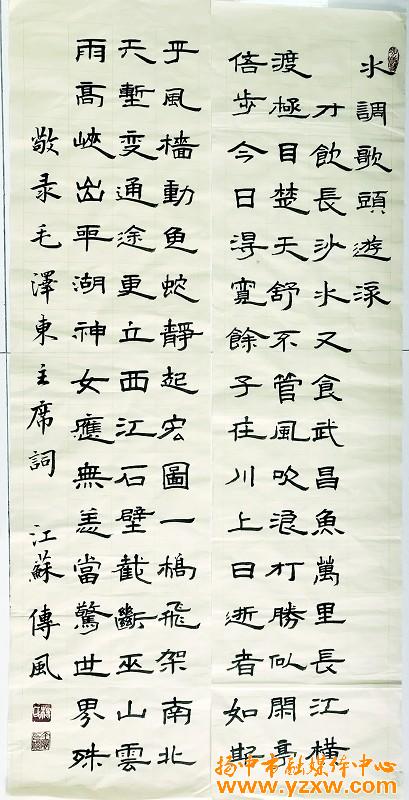 水調歌頭遊泳
才飲長沙水又食武昌魚萬里長江橫
渡極目楚天舒不管風吹浪打勝似閑亭
信步今日得寬餘子在川上曰逝者如斯
乎風檣動龜蛇靜起宏圖一橋飛架南北
天塹变通途更立西江石壁截斷巫山雲
雨高峽出平湖神女應無恙當驚世界殊
敬录毛澤東主席詞 江蘇傳風
扬中市融媒体中心
www.yzxw.com